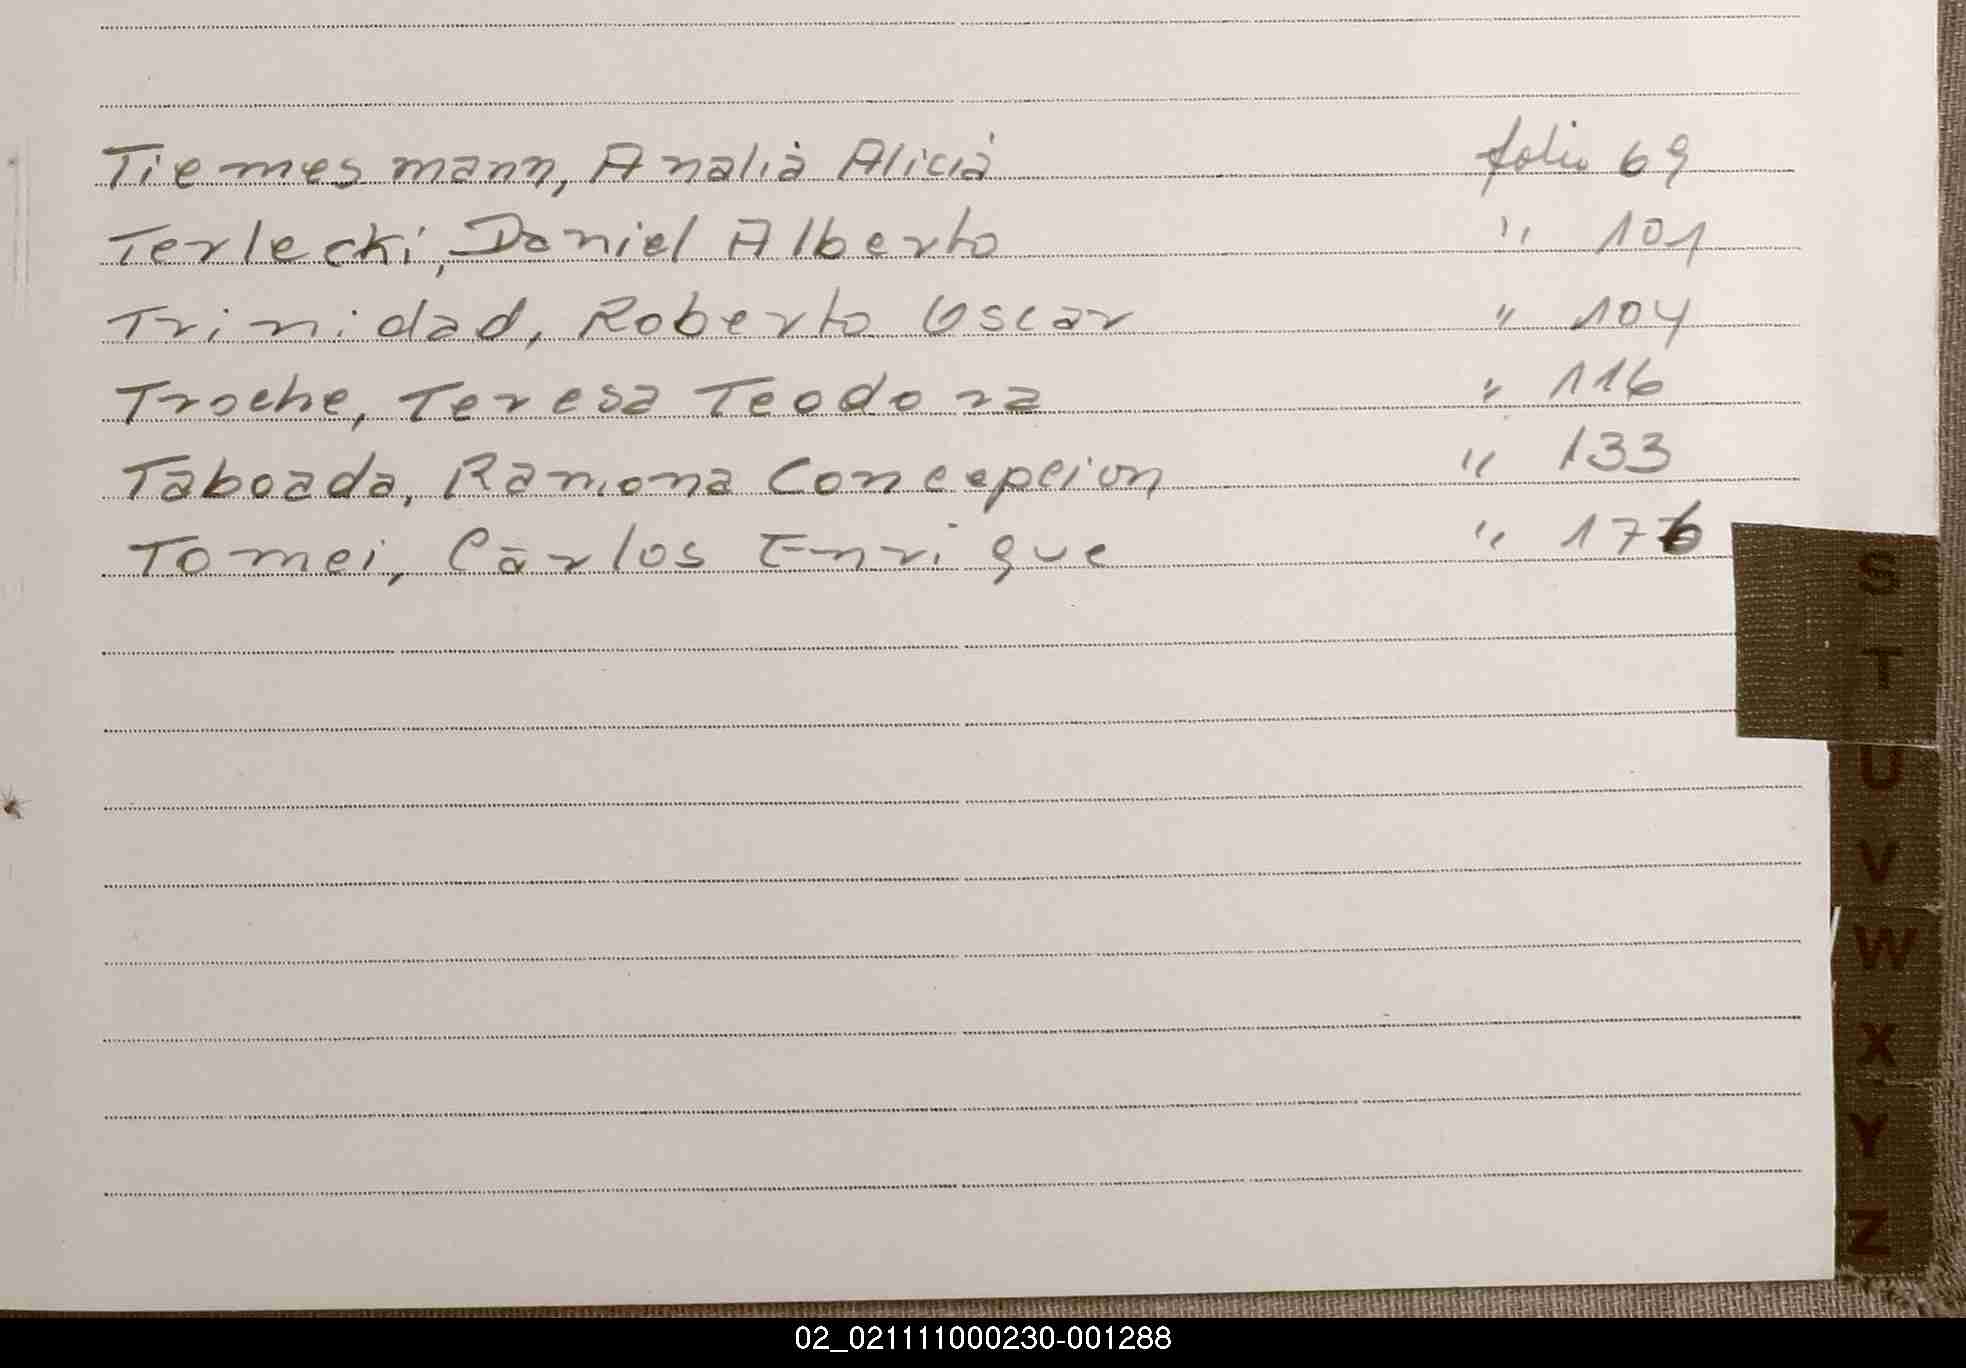 Tiemesmann, Analia Alicia folio 69
Terlecki, Daniel Alberto " 101
Trinidad, Roberto Oscar " 104
Troche, Teresa Teodora " 116
Taboada, Ramona Concepcion " 133
Tomei, Carlos Enrique " 176
S
T
U
V
W
X
Y
Z
02_021111000230-001288